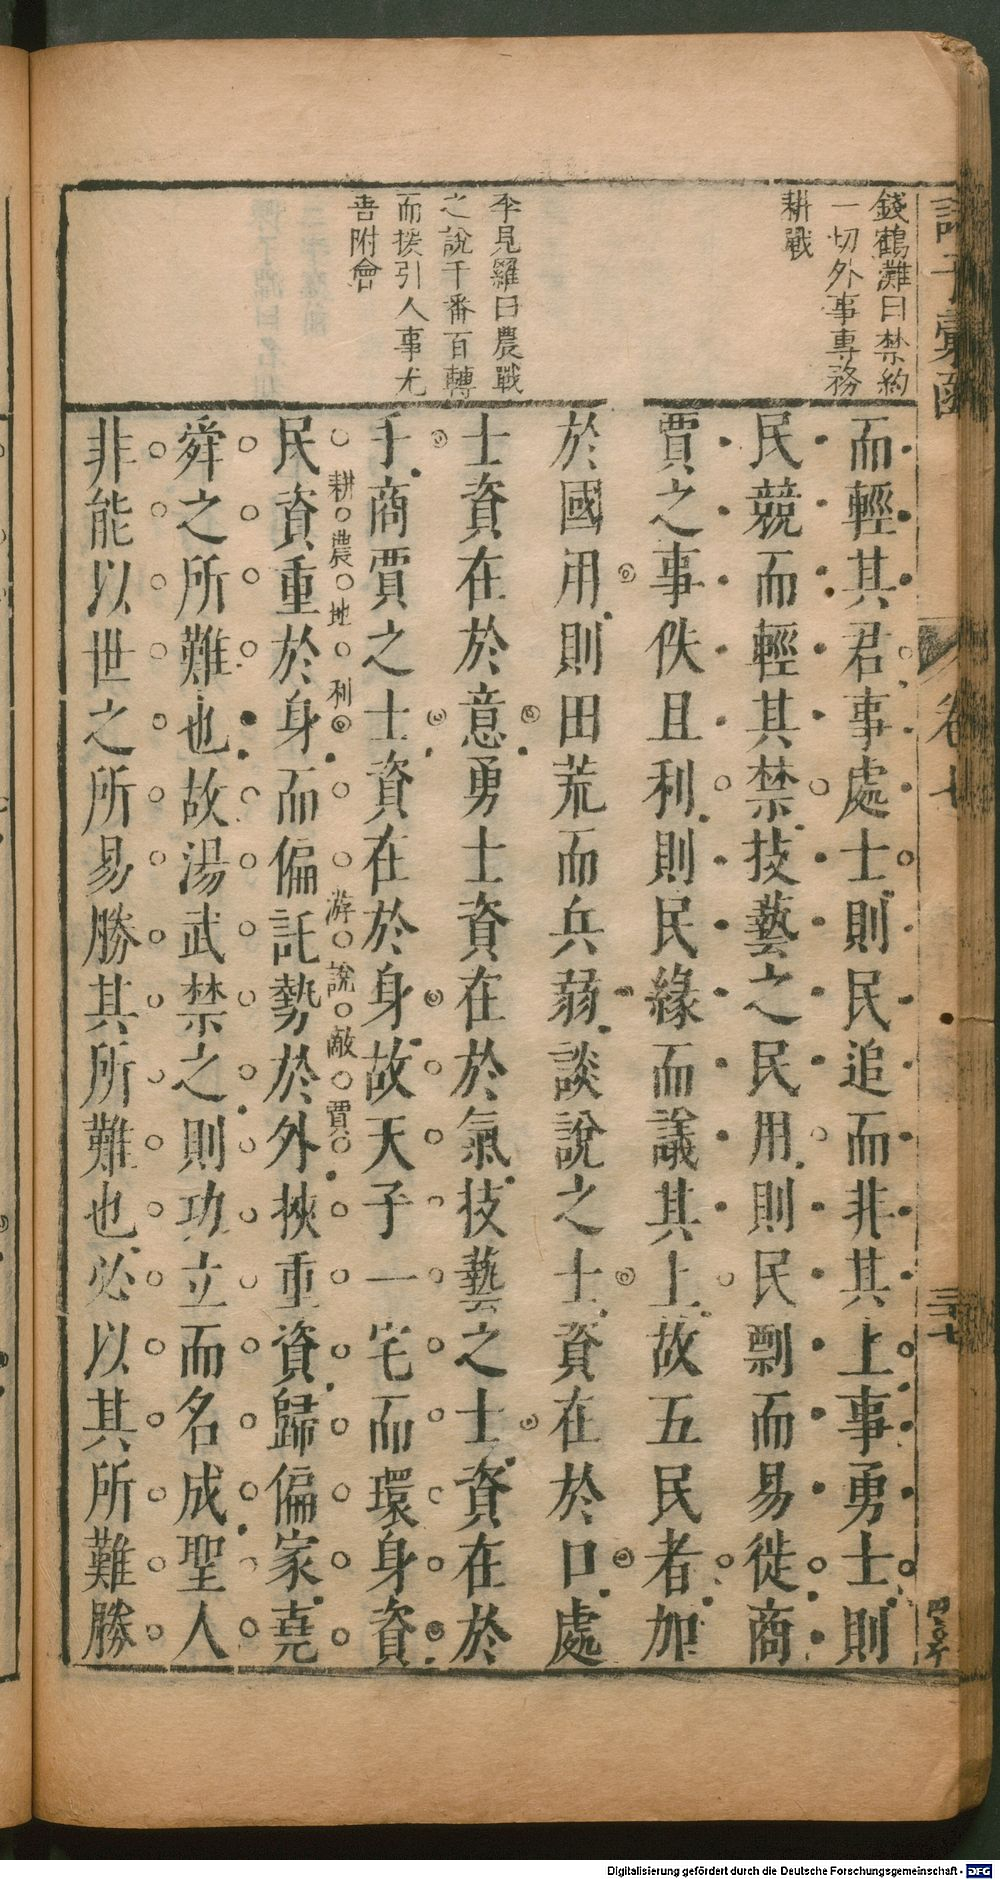 錢鶴灘曰禁約
一切外事專務
耕戰
李見羅曰農戰
之說千番百轉
而援引人事尤
善附會
而輕其君事處士則民追而非其上事勇士則
民競而輕其禁技藝之民用則民剽而易徙商
賈之事佚且利則民緣而議其上故五民者加
於國用則田荒而兵弱談說之士資在於口處
士資在於意勇士資在於氣技藝之士資在於
手商賈之士資在於身故天子一宅而環身資
耕農地利
游說敵賈
民資重於身而偏託勢於外挾重資歸偏家堯
舜之所難也故湯武禁之則功立而名成聖人
非能以世之所易勝其所難也必以其所難勝
諸子彙函
卷七
三十七
Digitalisierung gefördert durch die Deutsche Forschungsgemeinschaft - DFG